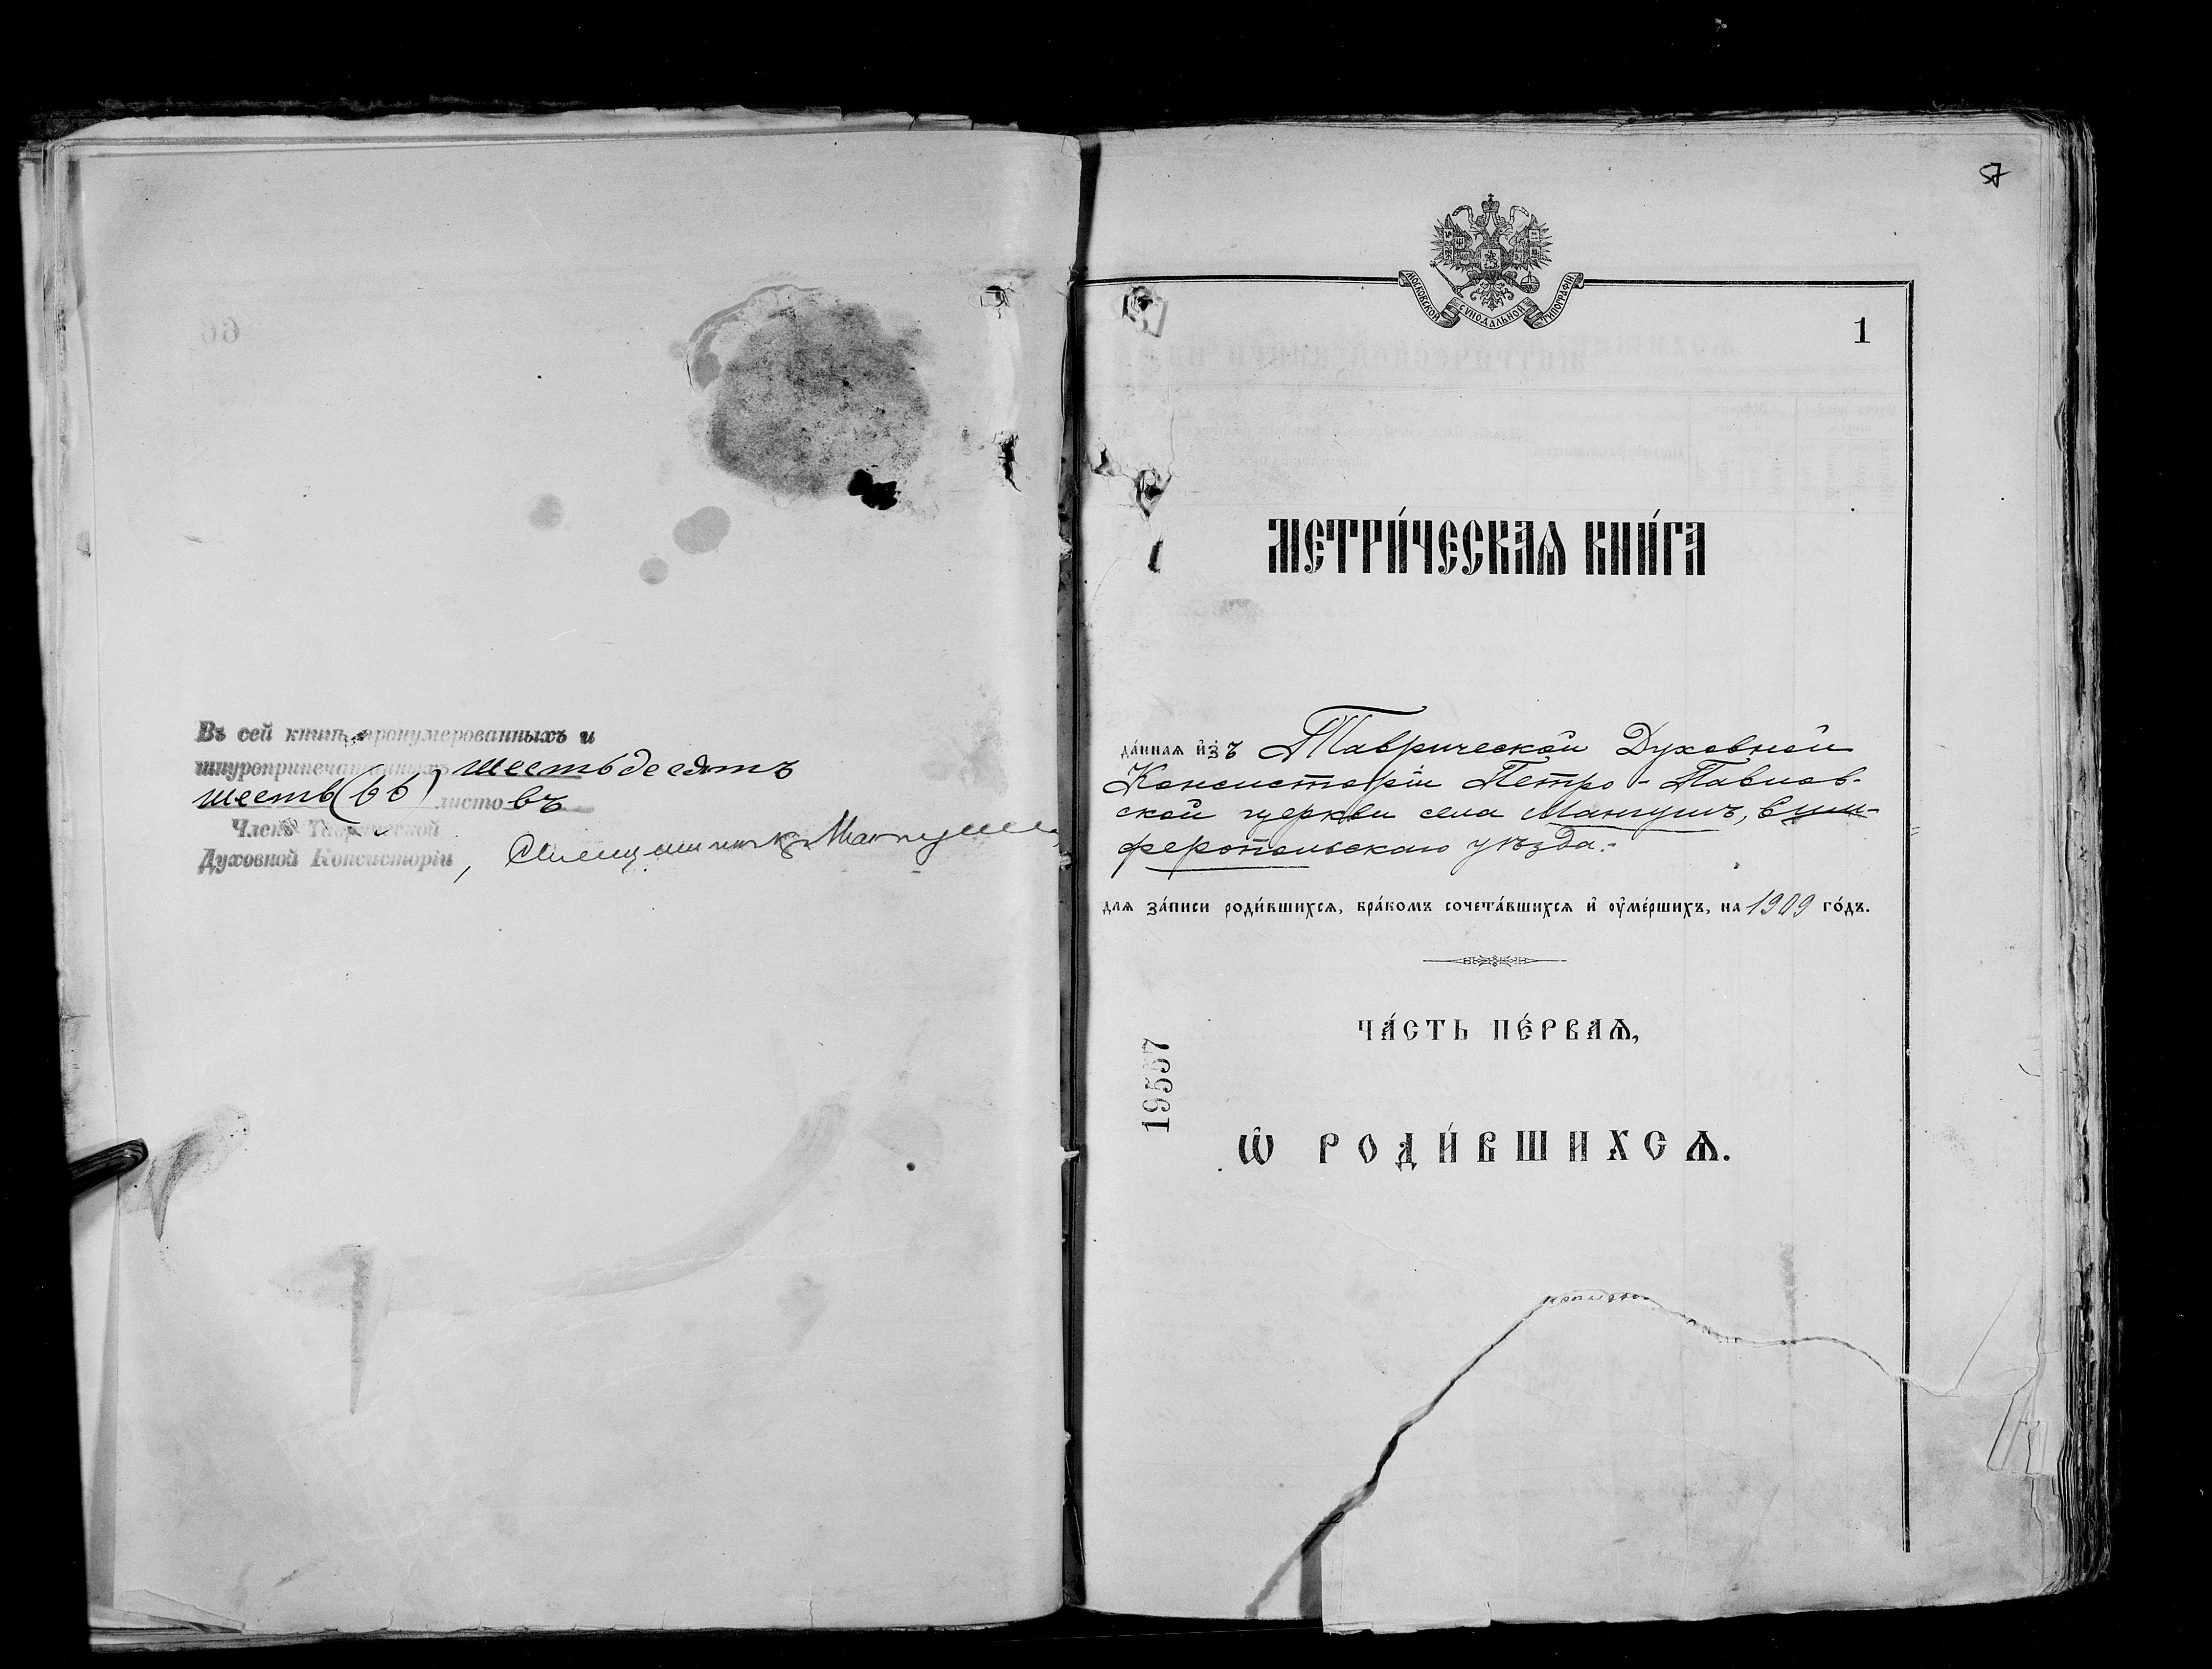 Въ сей книгѣ пронумерованныхъ и
шнуроприпечатанныхъ шестьдесятъ
шесть (66) листовъ
Членъ Таврической
Духовной Консисторіи, Священникъ
57
МОСКОВСКОЙ СѴНОДАЛЬНОЙ ТИПОГРАФІИ
1
МЕТРИ́ЧЕСКАѦ КНИ́ГА
да́нная и҆зъ Таврической Духовной
Консисторіи Петро-Павлов-
ской церкви села Мангушъ, Сим-
феропольскаго уѣзда.
для за́писи роди́вшихсѧ, бра́комъ сочета́вшихсѧ и҆ ᲂу҆ме́ршихъ, на 1909 го́дъ.
ЧА́СТЬ ПЕ́РВАѦ,
19557
Ѡ҆ РОДИ́ВШИХСѦ.